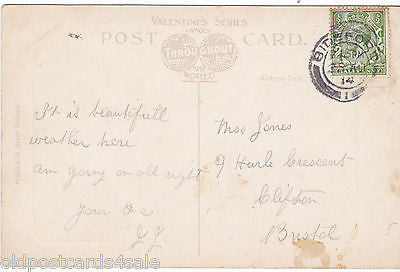 VALENTINE'S SERIES
FAMOUS
POST CARD.
THROUGHOUT
THE
WORLD
Address Only.
BIDEFORD
14
It is beautifull
weather here
am going on all right
Your &c
Miss Jones
9 Hurle Crescent
Clifton
Bristol
oldpostcards4sale